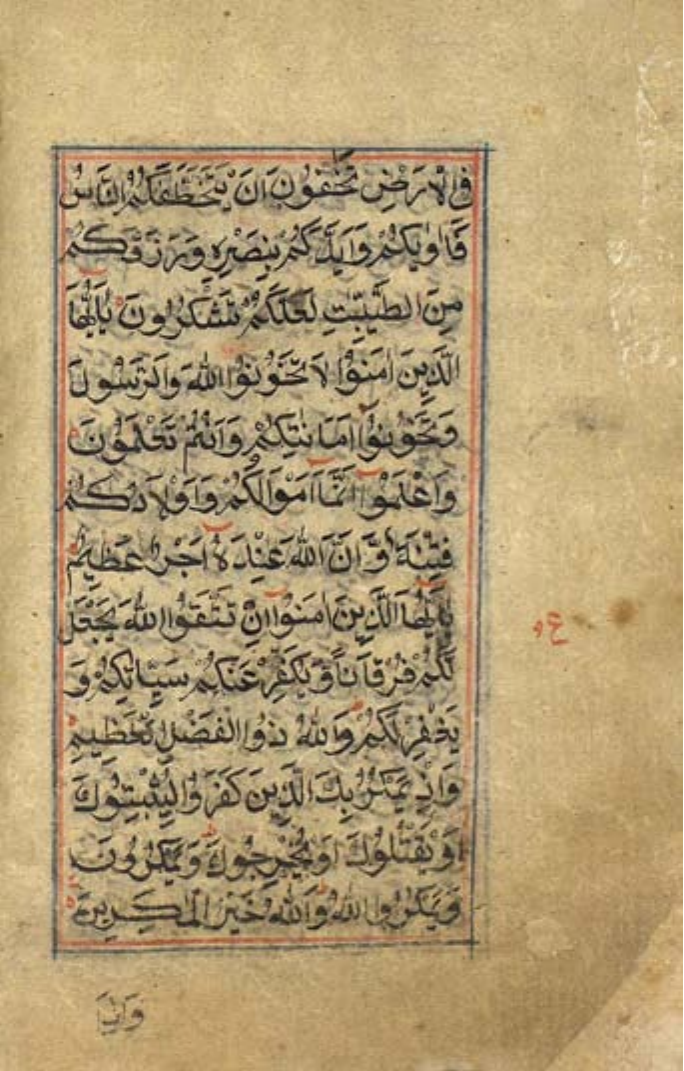 فِي الْاَرْضِ تَخَافُونَ اَنْ يَتَخَطَّفَكُمُ النَّاسُ
فَاٰوٰيكُمْ وَاَيَّدَكُمْ بِنَصْرِهٖ وَرَزَقَكُمْ
مِنَ الطَّيِّبٰتِ لَعَلَّكُمْ تَشْكُرُونَ يٰۤاَيُّهَا
الَّذِينَ اٰمَنُوْا لَا تَخُوْنُوا اللّٰهَ وَالرَّسُولَ
وَتَخُوْنُوْۤا اَمَانٰتِكُمْ وَاَنْتُمْ تَعْلَمُوْنَ
وَاعْلَمُوْۤا اَنَّمَاۤ اَمْوَالُكُمْ وَاَوْلَادُكُمْ
فِتْنَةٌ وَّاَنَّ اللّٰهَ عِنْدَهٗۤ اَجْرٌ عَظِيْمٌ
يٰۤاَيُّهَا الَّذِينَ اٰمَنُوْۤا اِنْ تَتَّقُوا اللّٰهَ يَجْعَلْ
لَكُمْ فُرْقَانًا وَّيُكَفِّرْ عَنْكُمْ سَيِّاٰتِكُمْ وَ
يَغْفِرْ لَكُمْ وَاللّٰهُ ذُوا الْفَضْلِ الْعَظِيْمِ
وَاِذْ يَمْكُرُ بِكَ الَّذِينَ كَفَرُوْا لِيُثْبِتُوْكَ
اَوْ يَقْتُلُوْكَ اَوْ يُخْرِجُوْكَ وَيَمْكُرُوْنَ
وَيَمْكُرُ اللّٰهُ وَاللّٰهُ خَيْرُ الْمٰكِرِيْنَ
ع
وَاِذَا